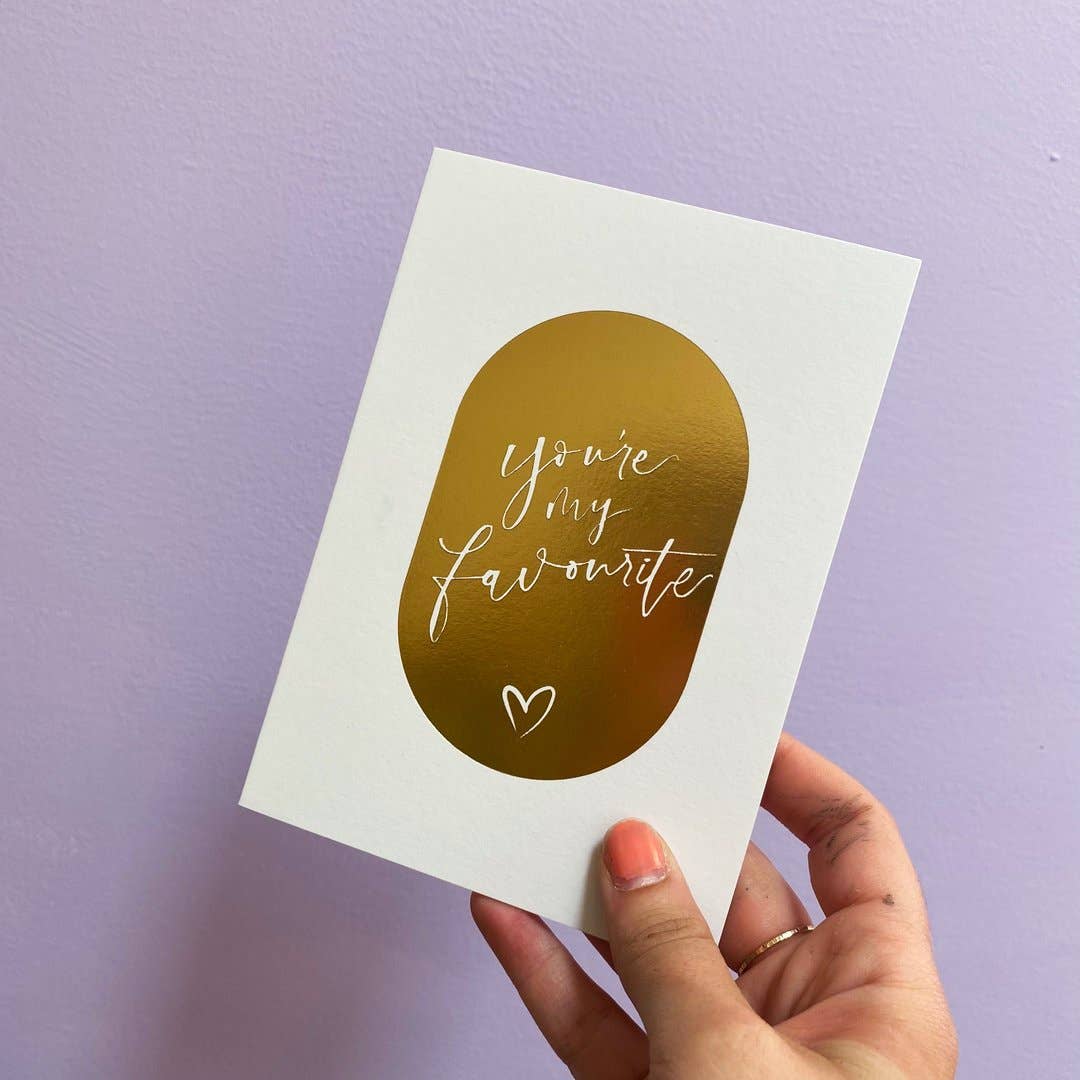 you're
my
favourite